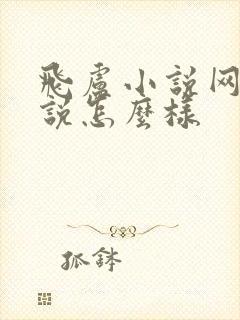 飛盧小说网
說怎麼樣
狐鉢